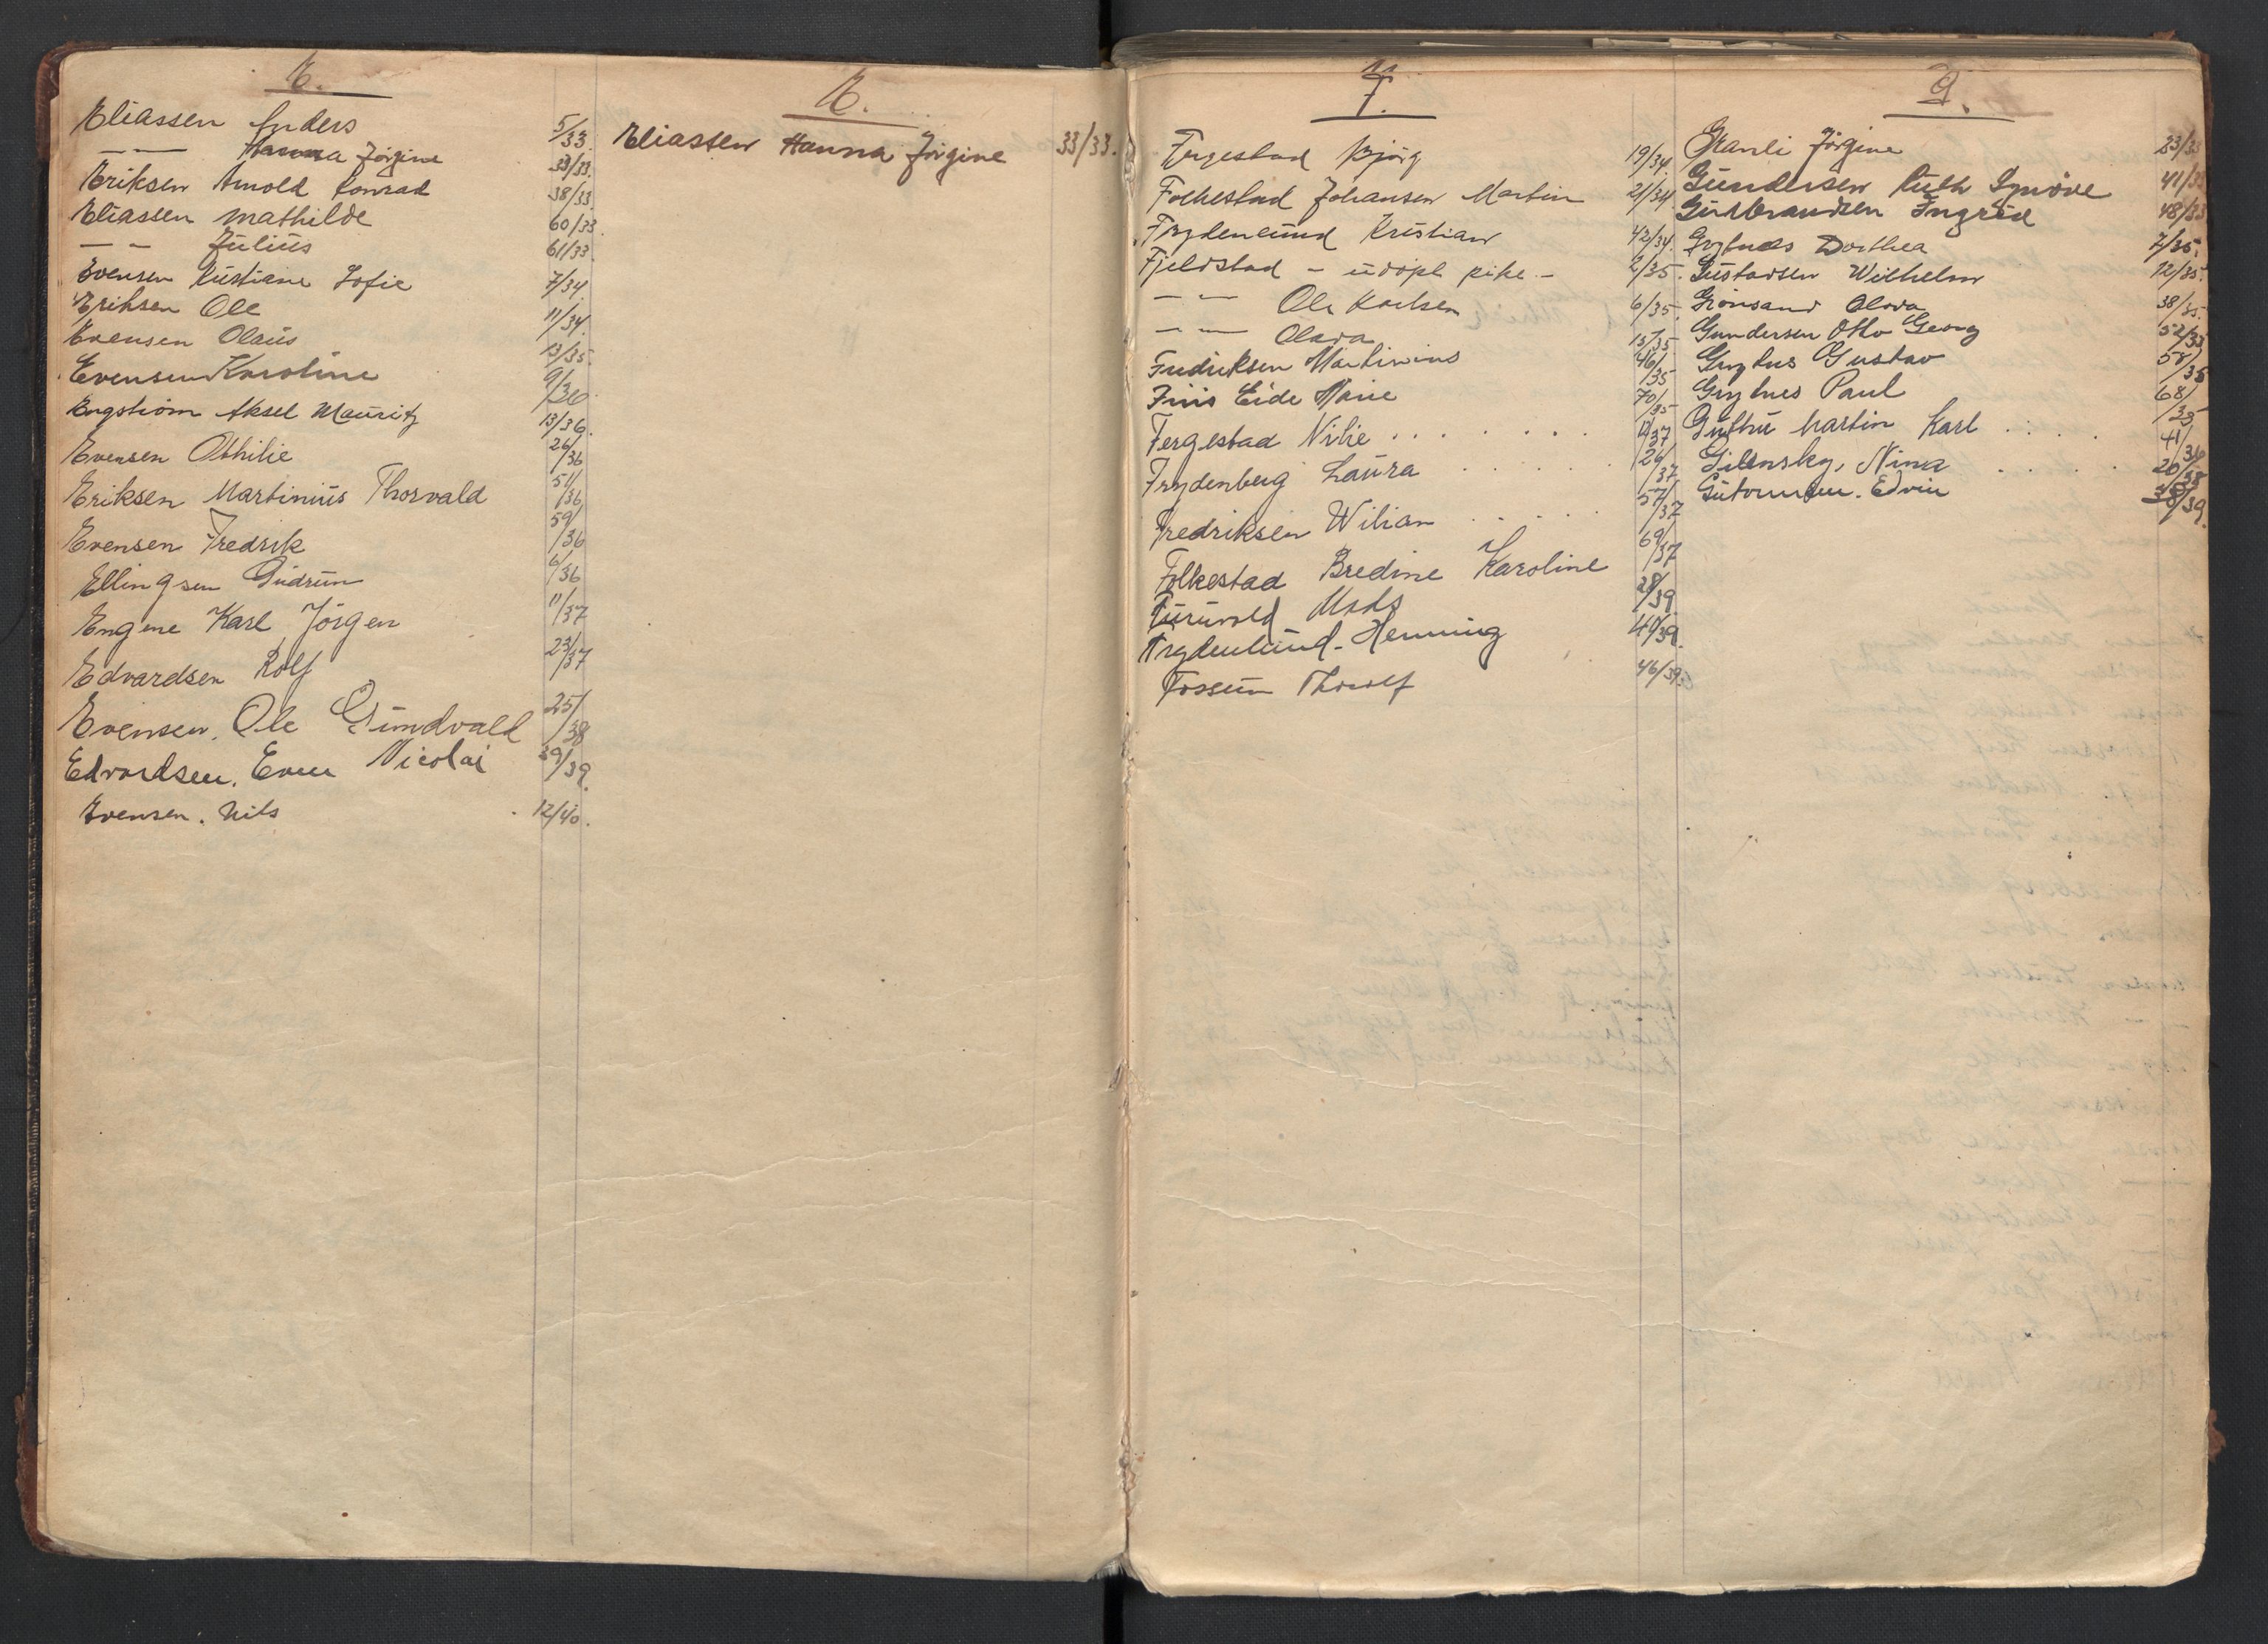 E.
Eliassen Anders 5/33.
— — Hanna Jörgine 33/33.
Eriksen Arnold Konrad 38/33.
Eliassen Mathilde 60/33.
— - Julius 61/33.
Evensen Kristiane Sofie 7/34
Eriksen Ole 11/34.
Evensen Olaus 13/35.
Evensen Karoline 9/36
Engström Aksel Mauritz 13/36.
Evensen Othilie 26/36
Eriksen Martinius Thorvald 51/36
Evensen Fredrik 59/36
Ellingsen Gudrun 6/36
Engene Karl Jörgen 11/37
Edvardsen Rolf 23/37
Evensen. Ole Gundvald 25/38
Edvardsen. Even Nicolai 39/39.
Evensen. Nils 12/40.
E.
Eliassen Hanna Jörgine 33/33.
F.
Fergestad Bjørg 19/34.
Folkestad Johansen Martin 21/34.
Frydenlund Kristian 42/34.
Fjeldstad - udöpt pike - 2/35.
— — Ole Karlsen 6/35.
— — Olava 15/35
Fredriksen Martinius 46/35
Friis Eide Marie 70/35
Fergestad Nilie . . . . . . . 12/37
Frydenberg Laura . . . . . 26/37
Fredriksen Wilian . . . . . 57/37
Folkestad Bredine Karoline 69/37
Furuvold Mads 28/39.
Frydenlund. Henning 40/39.
Fossum Thorolf 46/39.
G.
Granli Jörgine 23/33
Gundersen Ruth Synöve 41/33
Gulbrandsen Ingrid 48/33
Grytnes Dorthea 7/35.
Gustavsen Wilhelm 12/35.
Grönsand Olava 38/35.
Gundersen Otto Georg 52/35
Grytnes Gustav 58/35
Grytnes Paul 68/35
Martin Karl . . . . 41/36
Gilensky, Nina . . . . 20/38
Guttormsen. Edvin 38/39.